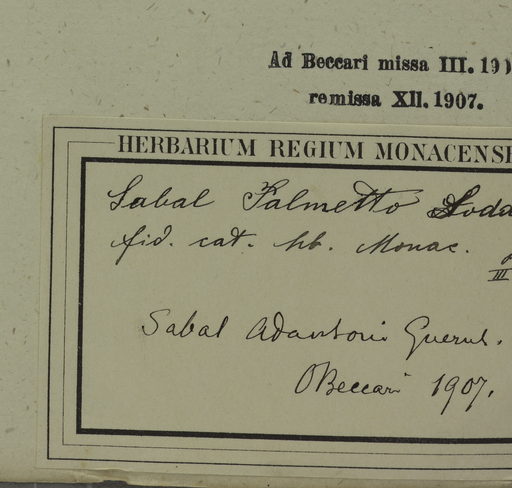 Ad Beccari missa III. 190
remissa XII. 1907.
HERBARIUM REGIUM MONACENSE
Sabal Palmetto Lodd
fid. cat. hb. Monac.
III
Sabal Adansoni Guerns.
OBeccari 1907.